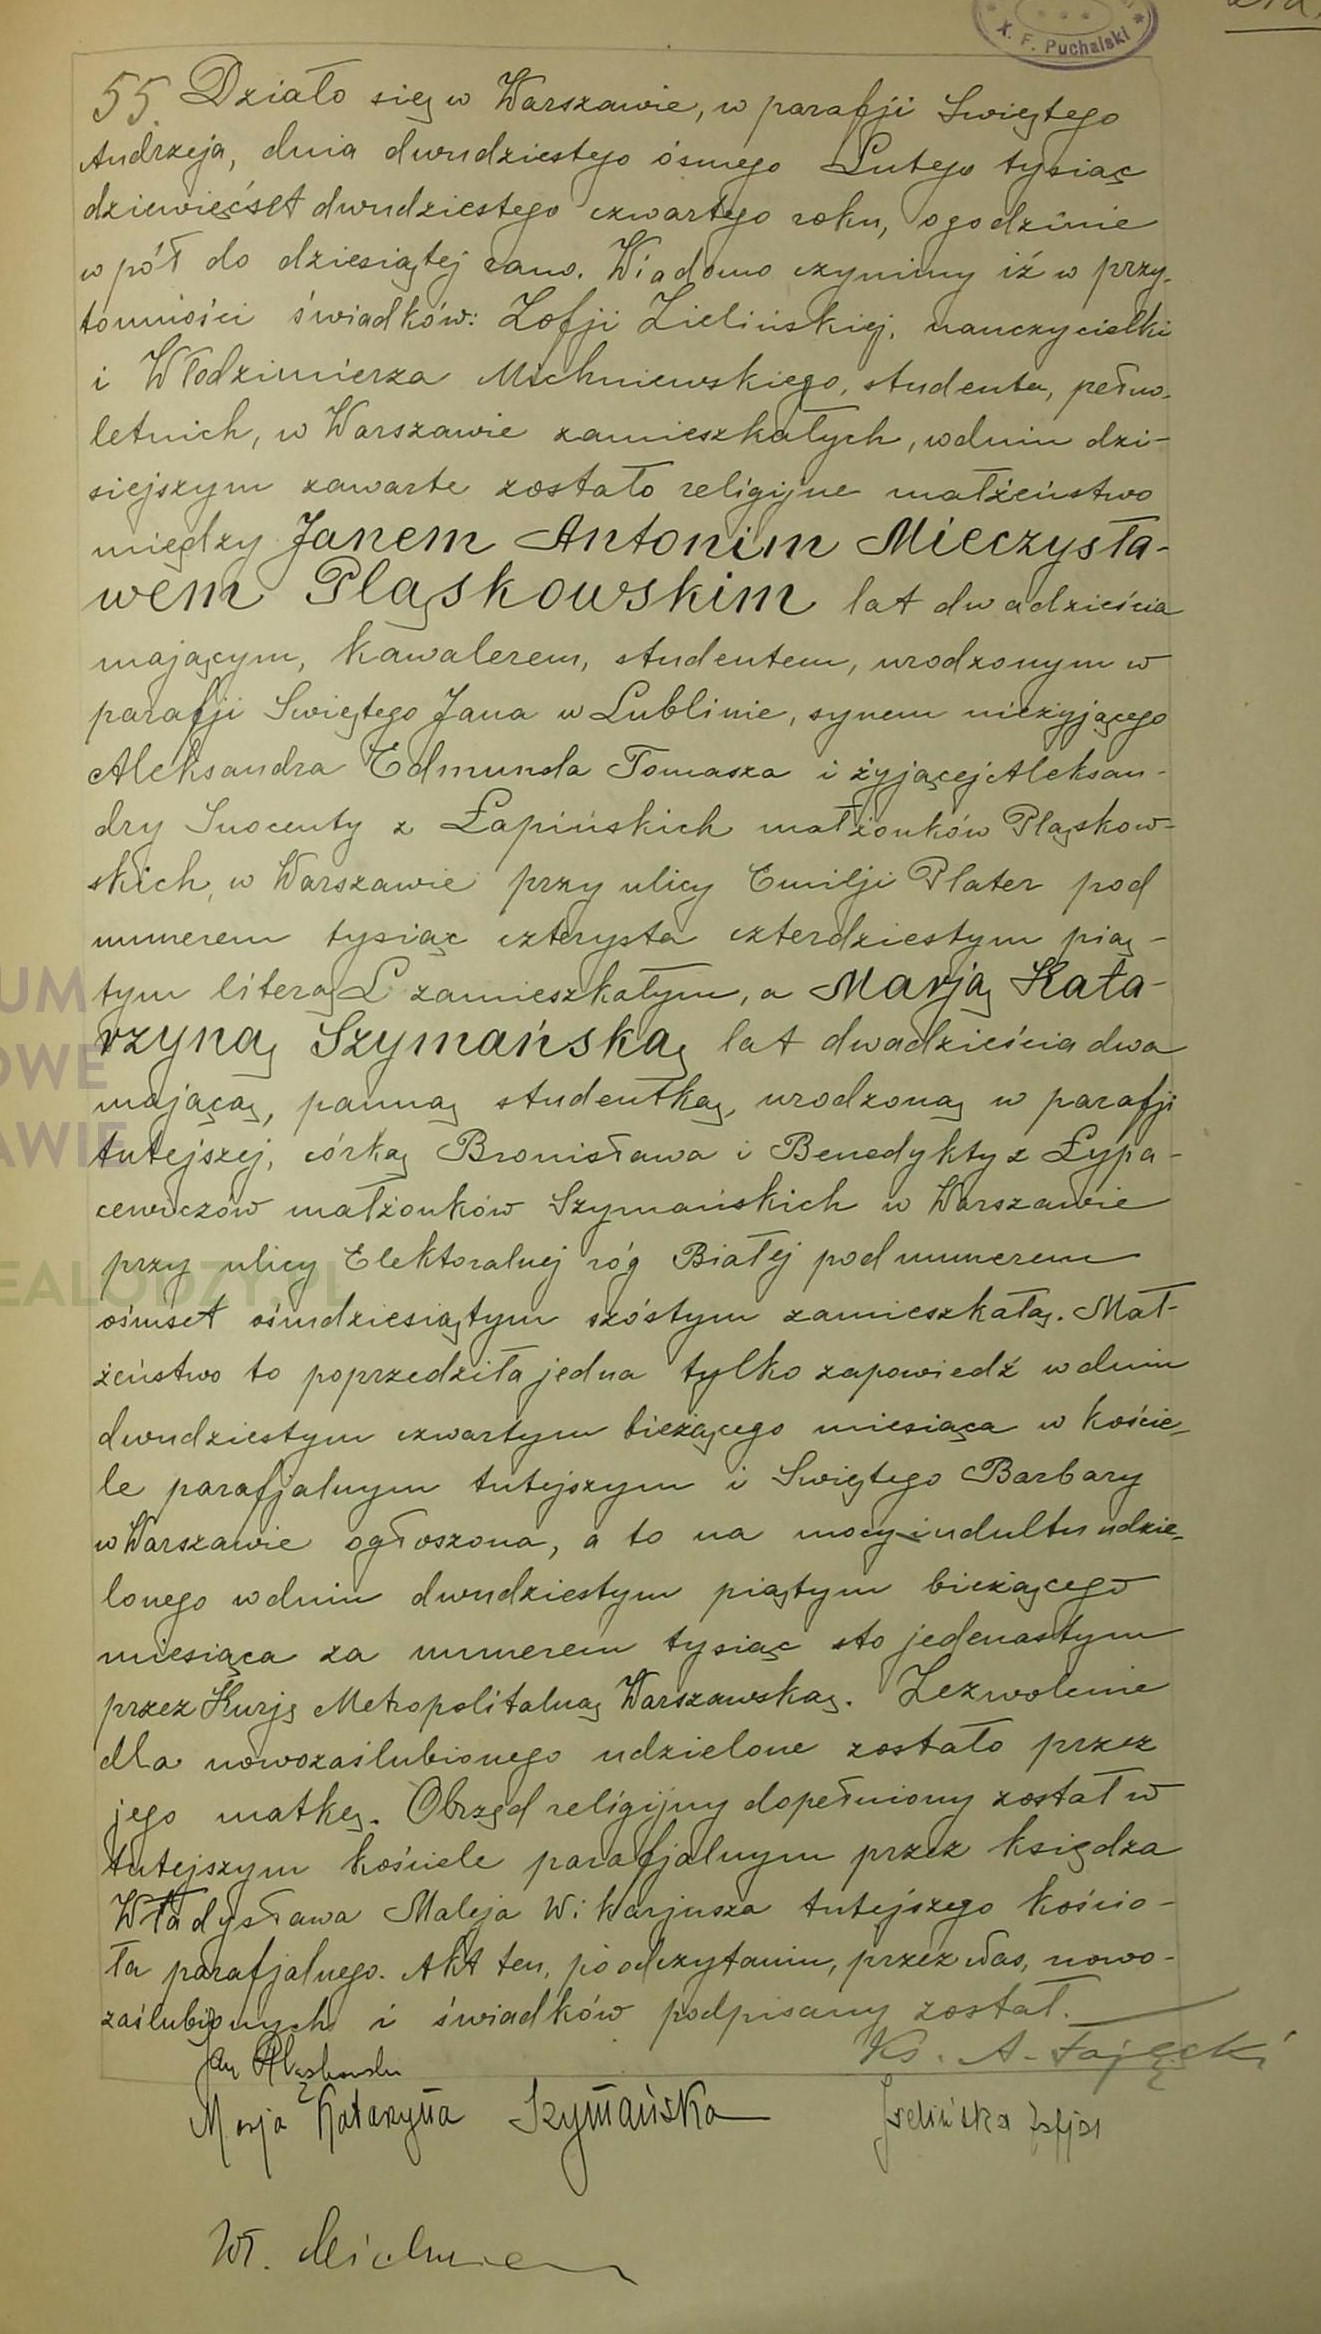 X. F. Puchalski
55. Działo się w Warszawie, w parafji Swiętego
Andrzeja, dnia dwudziestego ósmego Lutego tysiąc
dziewięćset dwudziestego czwartego roku, o godzinie
w pół do dziesiątej rano. Wiadomo czynimy iż w przy-
tomności świadków: Zofji Zielińskiej, nauczycielki
i Włodzimierza Michniewskiego, studenta, pełno-
letnich, w Warszawie zamieszkałych, w dniu dzi-
siejszym zawarte zostało religijne małżeństwo
między Janem Antonim Mieczysła-
wem Pląskowskim lat dwadzieścia
mającym, kawalerem, studentem, urodzonym w
parafji Swiętego Jana w Lublinie, synem nieżyjącego
Aleksandra Edmunda Tomasza i żyjącej Aleksan-
dry Inocenty z Łapińskich małżonków Pląskow-
skich, w Warszawie przy ulicy Emilji Plater pod
numerem tysiąc czterysta czterdziestym pią-
tym literą L zamieszkałym, a Marją Kata-
rzyną Szymańską lat dwadzieścia dwa
mającą, panną studentką, urodzoną w parafji
tutejszej, córką Bronisława i Benedykty z Łypa-
cewiczów małżonków Szymańskich w Warszawie
przy ulicy Elektoralnej róg Białej pod numerem
ośmset ośmdziesiątym szóstym zamieszkałą. Mał-
żeństwo to poprzedziła jedna tylko zapowiedź w dniu
dwudziestym czwartym bieżącego miesiąca w koście-
le parafjalnym tutejszym i Swiętego Barbary
w Warszawie ogłoszona, a to na mocy indultu udzie-
lonego w dniu dwudziestym piątym bieżącego
miesiąca za numerem tysiąc sto jedenastym
przez Kurję Metropolitalną Warszawską. Zezwolenie
dla nowozaślubionego udzielone zostało przez
jego matkę. Obrzęd religijny dopełniony został w
tutejszym kościele parafjalnym przez księdza
Władysława Maleja Wikarjusza tutejszego kościo-
ła parafjalnego. Akt ten, po odczytaniu, przez Nas, nowo-
zaślubionych i świadków podpisany został.
Ks. A. Fajęcki
Jan Pląskowski
Marja Katarzyna Szymańska
Zielińska Zofja
Wł. Michniew